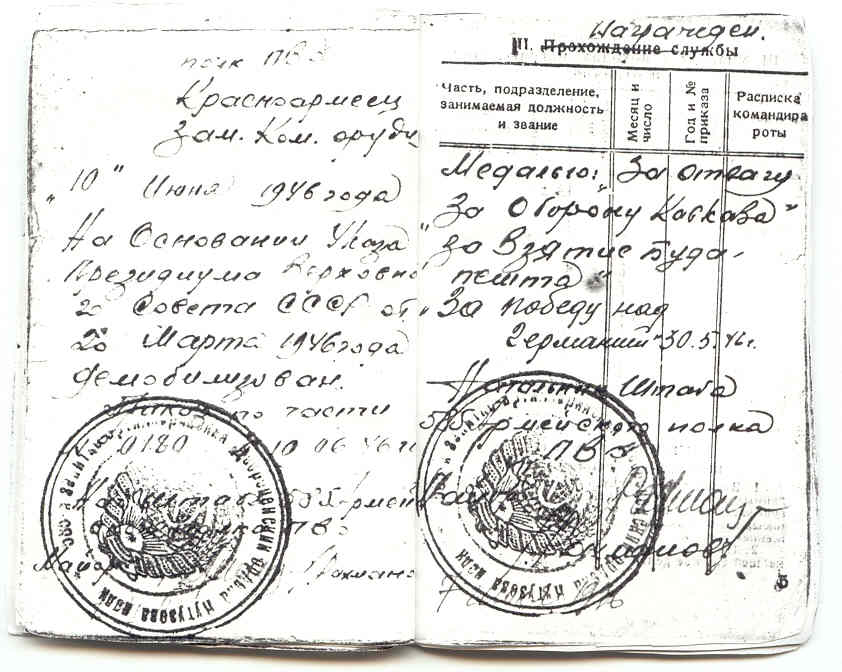 полк ПВО
Красноармеец
Зам. Ком. оруди
"10" Июня 1946 года
На Основании Указа
Президиума Верховно
го Совета СССР от
20 Марта 1946 года
демобилизован.
по части
0180 10 06 46
585 Армей
полка ПВО
Майор
Награжден.
III. Прохождение службы
Часть, подразделение, занимаемая должность и звание
Месяц и число
Год и № приказа
Расписка командира роты
Медалью: "За отвагу
За Оборону Кавказа"
"за Взятие Буда-
пешта"
"За победу над
Германией" 30.5.46г.
Начальник Штаба
585 Армейского полка
ПВО
5